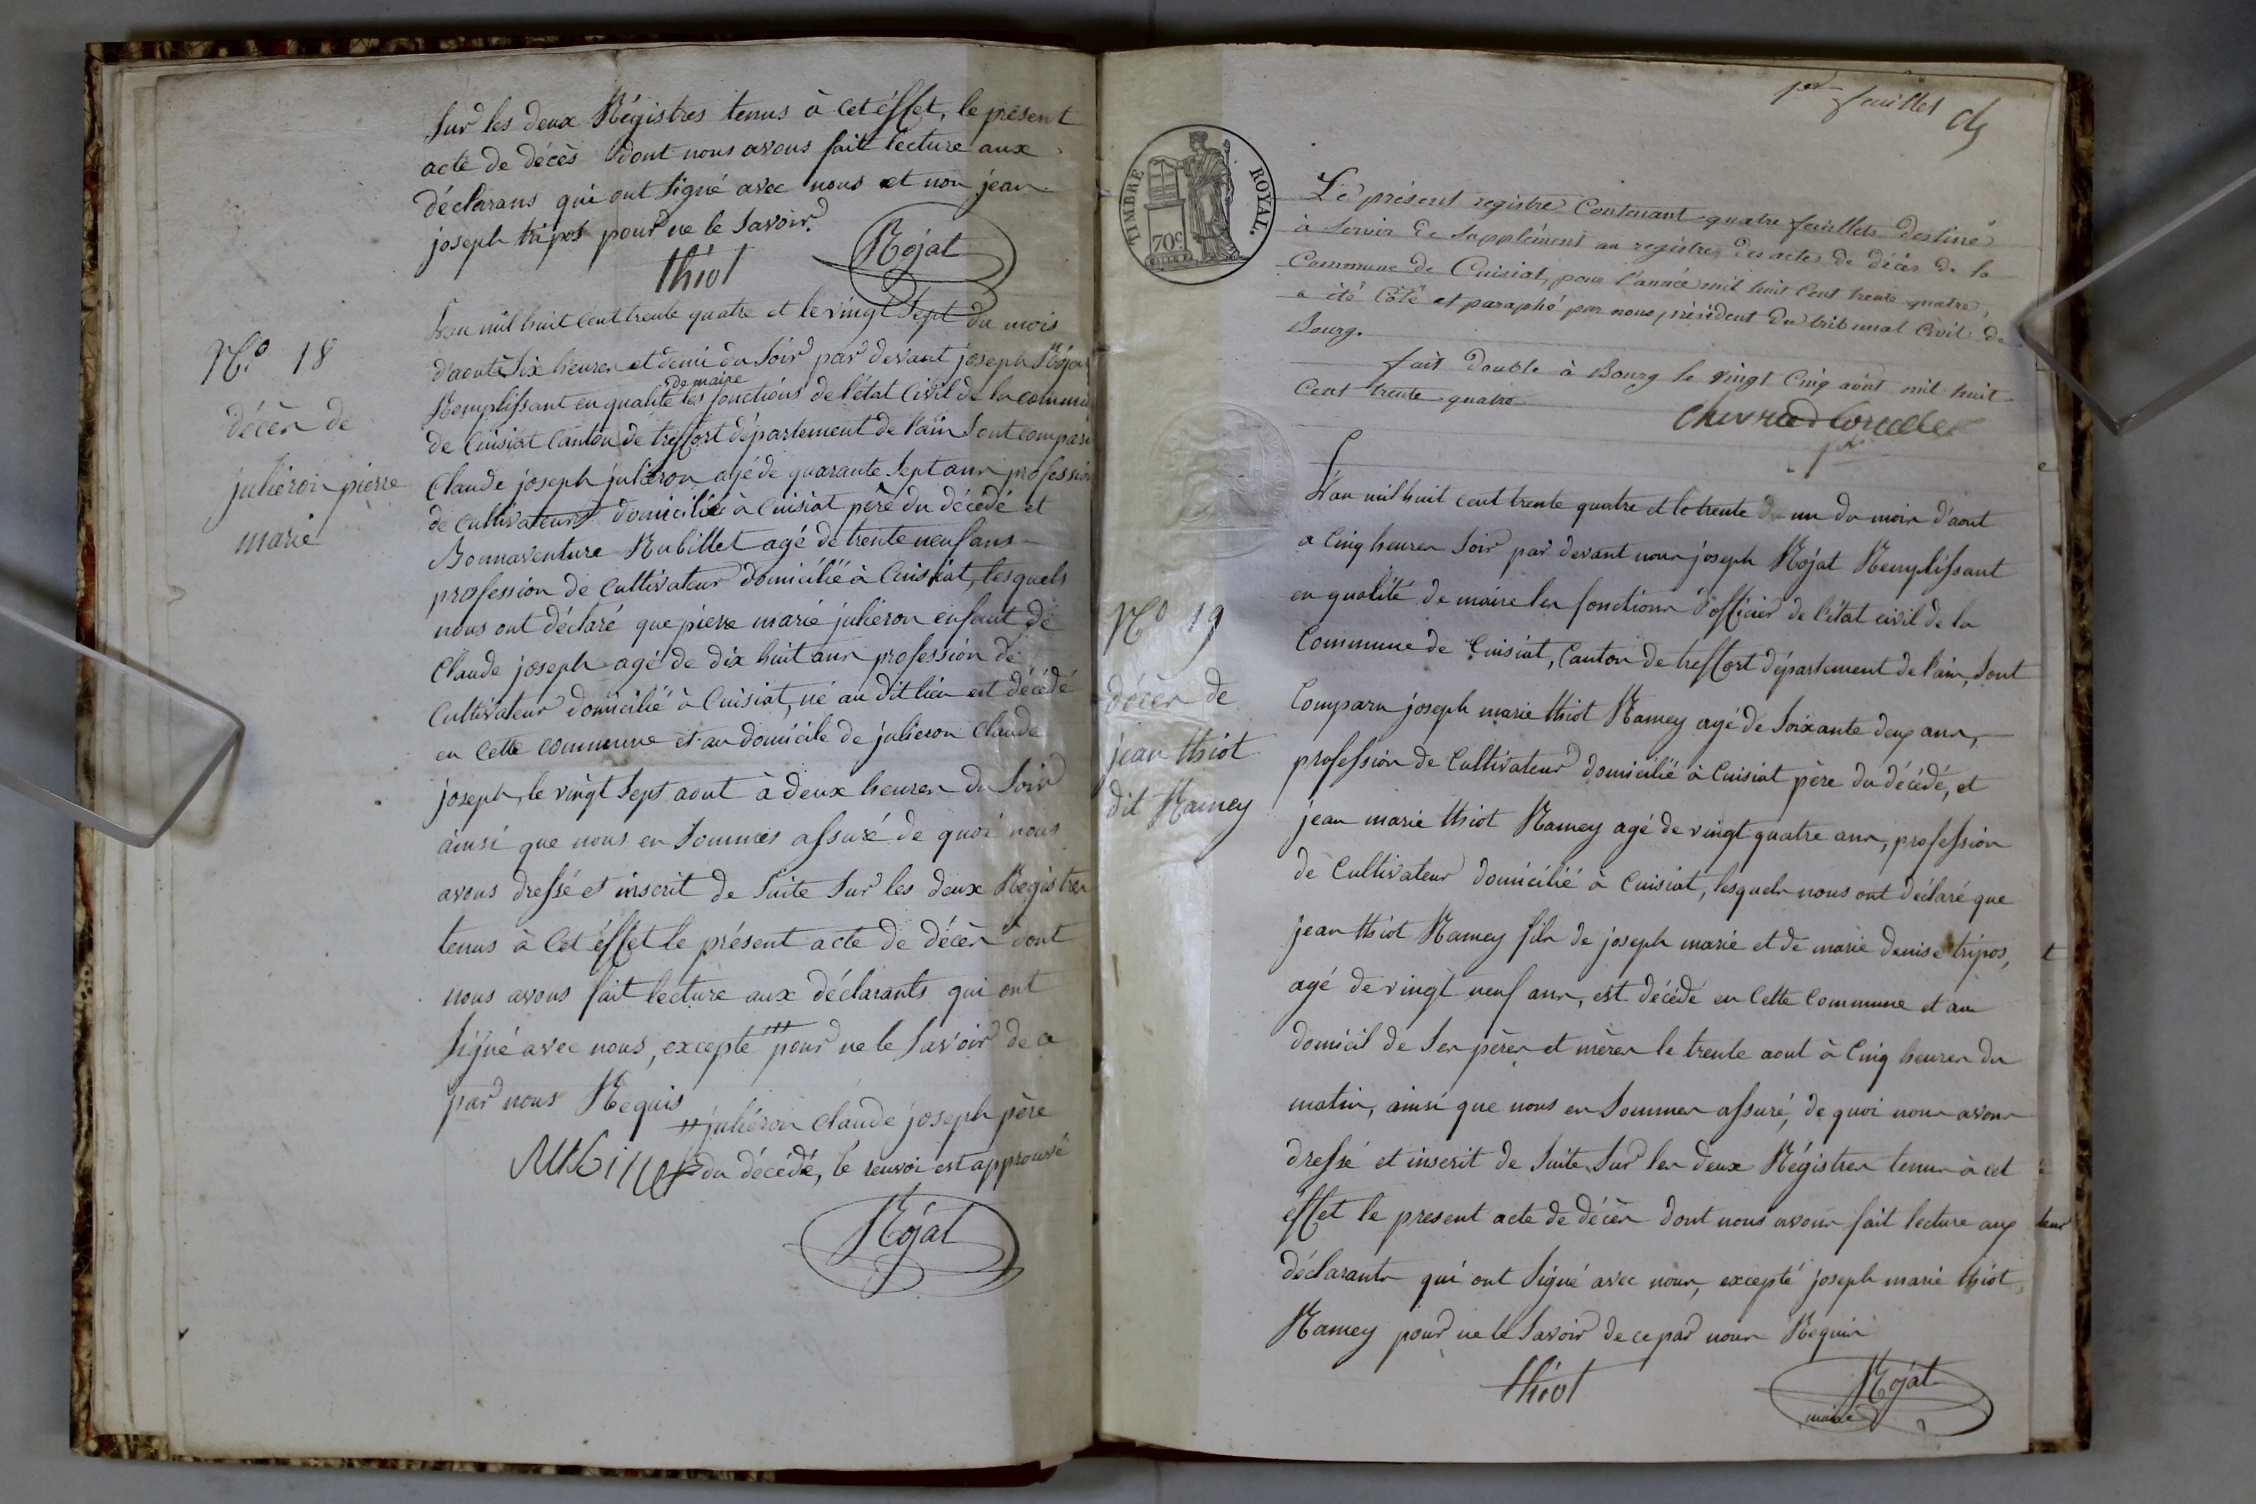 Sur les deux Régistres tenus à cet éffet, le présent
acte de décès dont nous avons fait lecture aux
déclarans qui ont signé avec nous et non jean
joseph tripos pour ne le savoir.
thiot Rojat
N.º 18
décès de
julieron pierre
marie
L'an mil huit cent trente quatre et le vingt sept du mois
d'aout six heures et demi du soir par devant joseph Rojat
Remplissant en qualité de maire les fonctions de l'état civil de la commune
de Cuisiat Canton de treffort département de l'ain sont comparu
Claude joseph julieron agé de quarante sept ans profession
de cultivateur domicilié à Cuisiat père du décédé et
Bonnaventure Rubillet agé de trente neuf ans
profession de cultivateur domicilié à Cuisiat, lesquels
nous ont déclaré que pierre marie julieron enfant de
Claude joseph agé de dix huit ans profession de
Cultivateur domicilié à Cuisiat, né au dit lieu est décédé
en cette commune et au domicile de julieron Claude
joseph, le vingt sept aout à deux heures du soir
ainsi que nous en sommes assuré de quoi nous
avons dressé et inscrit de suite sur les deux Registres
tenus à cet éffet le présent acte de décès dont
nous avons fait lecture aux déclarants qui ont
signé avec nous, excepté /// pour ne le savoir de ce
par nous Requis
// julieron claude joseph père
du décédé, le renvoi est approuvé
Rubillet
Rojat
1er feuillet
TIMBRE ROYAL.
70c
Le présent registre Contenant quatre feuillets destiné
à servir de supplément au registre des actes de décès de la
Commune de Cuisiat, pour l'année mil huit cent trente quatre,
a été côté et paraphé par nous président du tribunal Civil de
Bourg.
fait double à Bourg le vingt cinq août mil huit
Cent trente quatre
N.º 19
décès de
jean thiot
dit Ramey
L'an mil huit cent trente quatre et le trente un du mois d'aout
a cinq heures soir par devant nous joseph Rojat Remplissant
en qualité de maire les fonctions d'officier de l'état civil de la
Commune de Cuisiat, Canton de treffort département de l'ain, sont
Comparu joseph marie thiot Ramey agé de soixante deux ans,
profession de Cultivateur domicilié à Cuisiat père du décédé, et
jean marie thiot Ramey agé de vingt quatre ans, profession
de Cultivateur domicilié à Cuisiat, lesquels nous ont déclaré que
jean thiot Ramey fils de joseph marie et de marie denise tripos,
agé de vingt neuf ans, est décédé en cette Commune et au
domicil de ses pères et mères le trente aout à cinq heures du
matin, ainsi que nous en sommes assuré, de quoi nous avons
dressé et inscrit de suite sur les deux Régistres tenus à cet
éffet le present acte de décès dont nous avons fait lecture aux
déclarants qui ont signé avec nous, excepté joseph marie thiot
Ramey pour ne le savoir de ce par nous Requis
thiot Rojat
maire